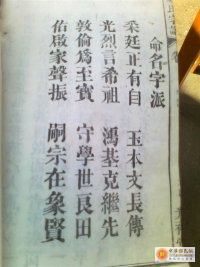 命名字派
采廷正有自　玉本文長傳
光烈言希祖　鴻基克繼先
敦倫爲至寶　守學世良田
佑啟家聲振　嗣宗在象賢